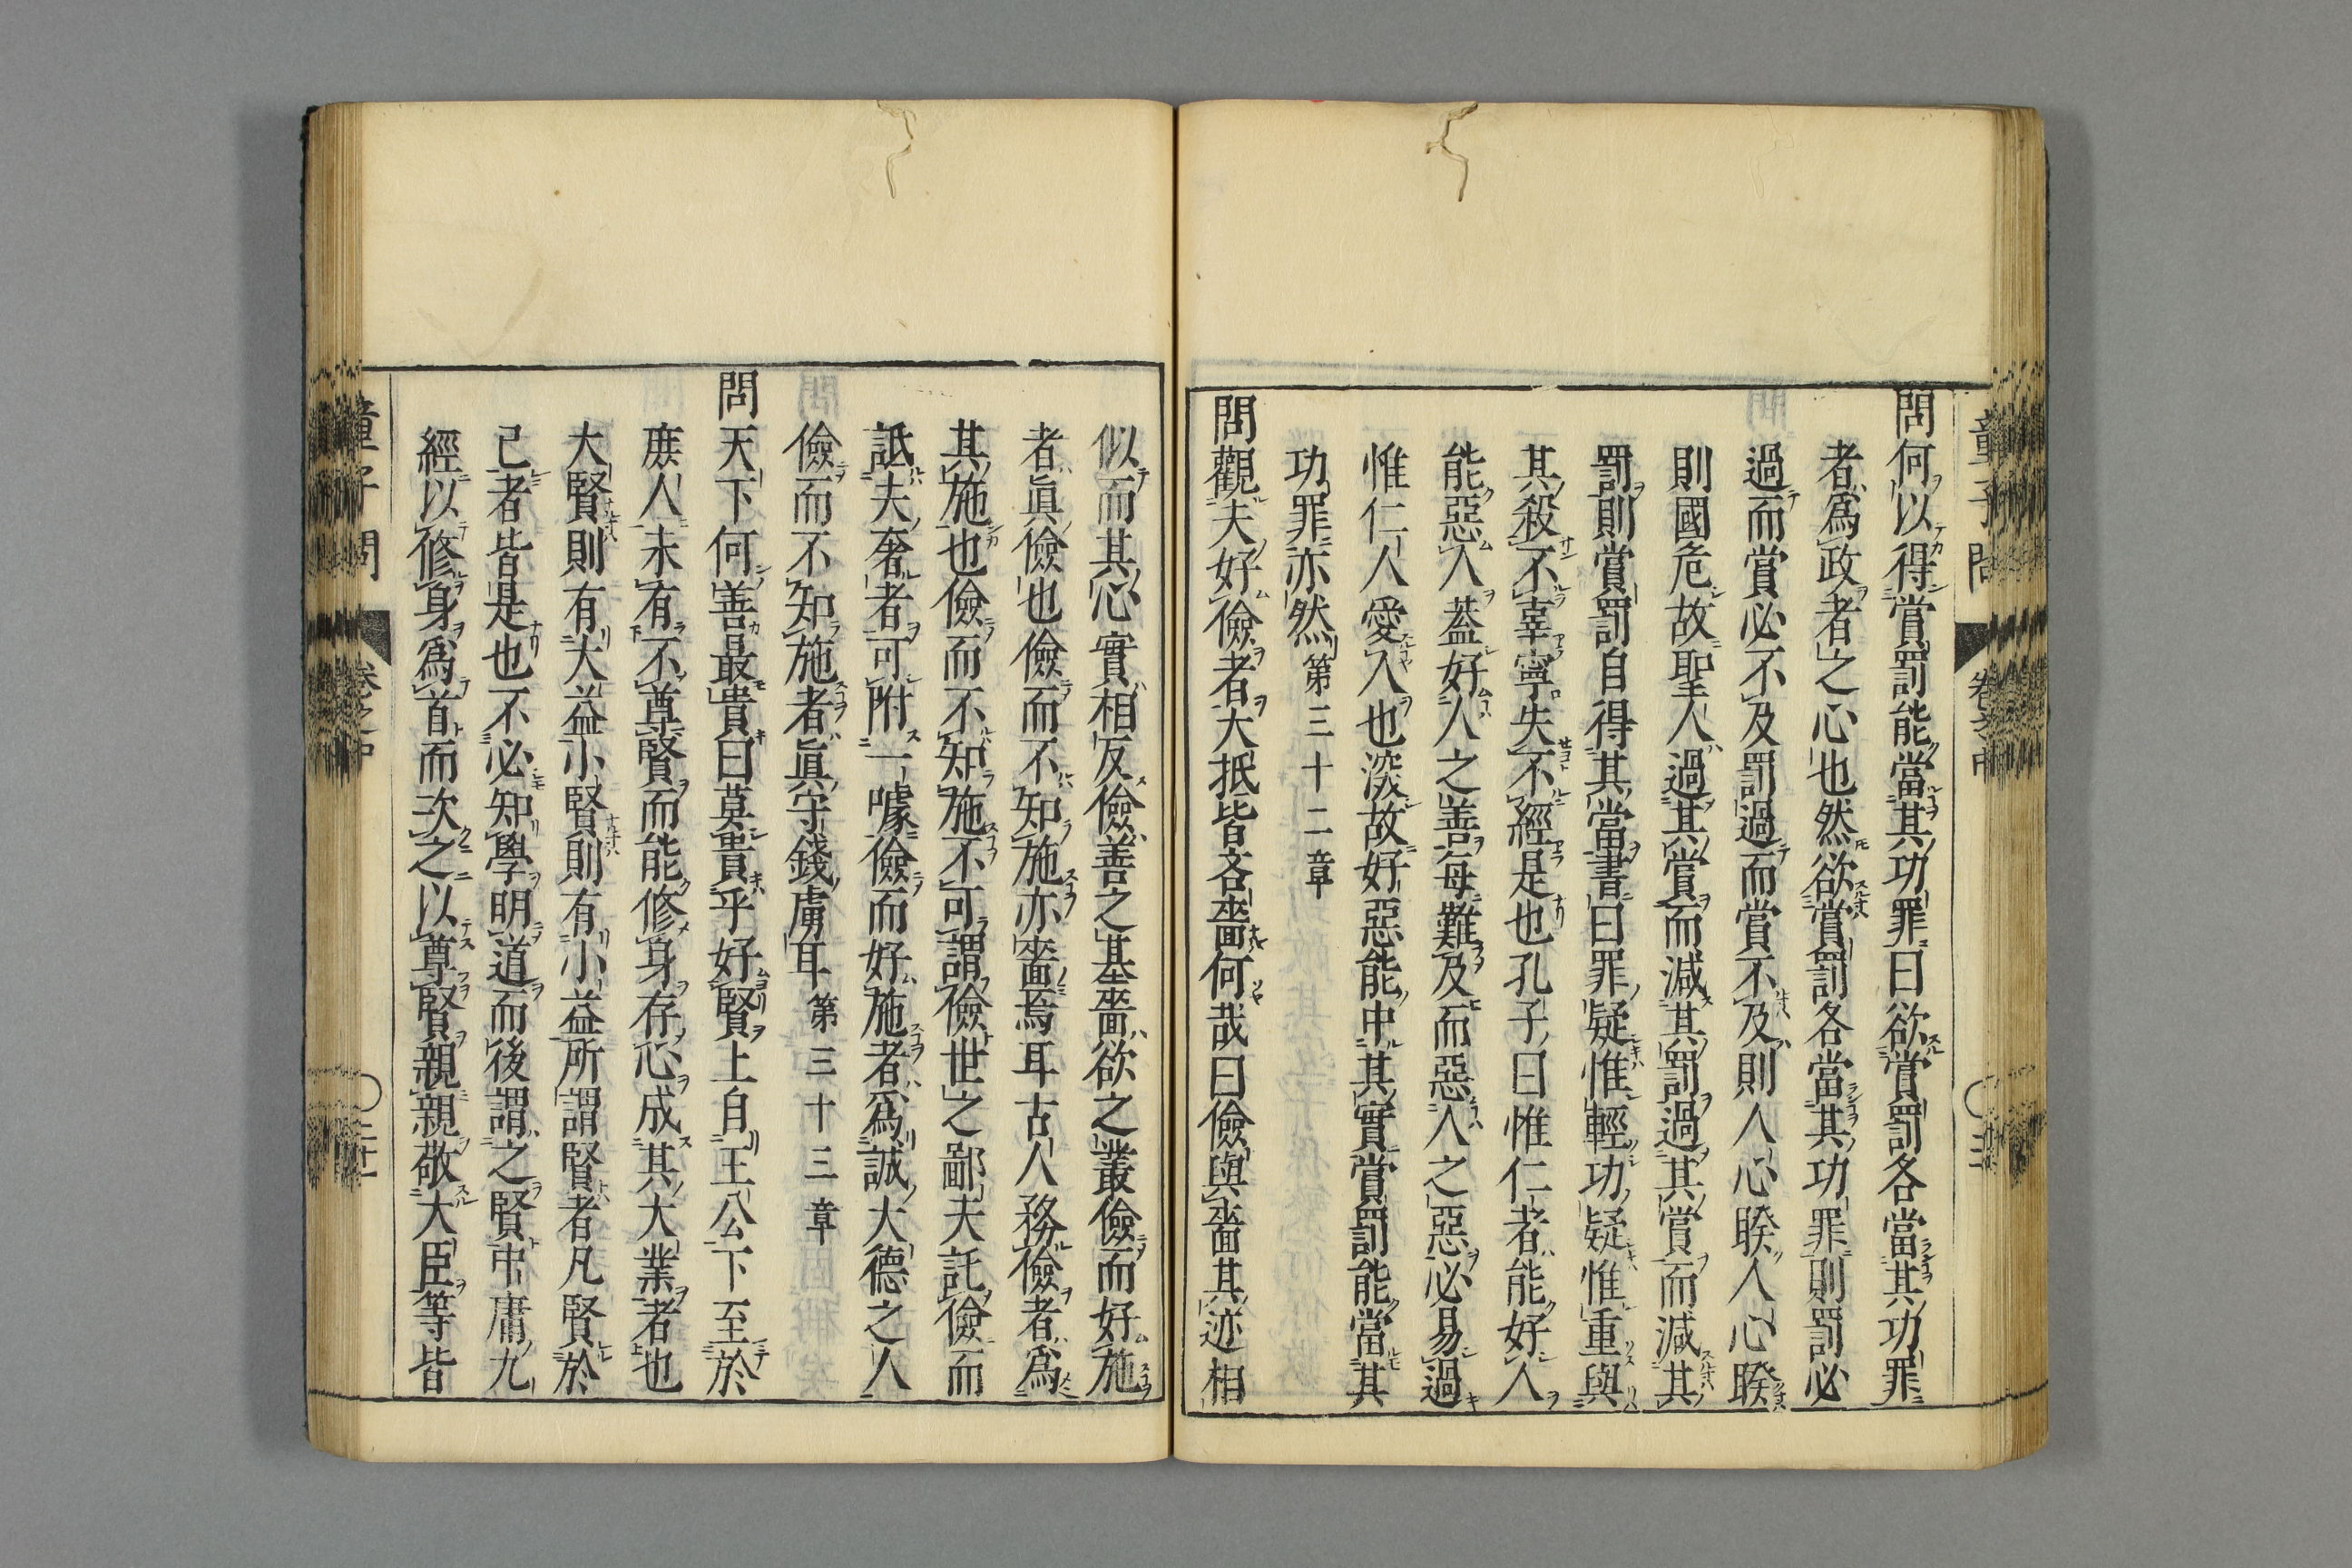 問何以得賞罰能當其功罪曰欲賞罰各當其功罪
者爲政者之心也然欲賞罰各當其功罪則罰必
過而賞必不及罰過而賞不及則人心睽人心睽
則國危故聖人過其賞而減其罰過其賞而減其
罰則賞罰自得其當書曰罪疑惟輕功疑惟重與
其殺不辜寧失不經是也孔子曰惟仁者能好人
能惡人蓋好人之善每難及而惡人之惡必易過
惟仁人愛人也深故好惡能中其實賞罰能當其
功罪亦然 第三十二章
問觀夫好儉者大抵皆吝嗇何哉曰儉與嗇其迹相
似而其心實相反儉善之基嗇欲之叢儉而好施
者眞儉也儉而不知施亦嗇焉耳古人務儉者爲
其施也儉而不知施不可謂儉世之鄙夫託儉而
詆夫奢者可附一噱儉而好施者爲誠大德之人
儉而不知施者眞守錢虜耳 第三十三章
問天下何善最貴曰莫貴乎好賢上自王公下至於
庶人未有不尊賢而能修身存心成其大業者也
大賢則有大益小賢則有小益所謂賢者凡賢於
己者皆是也不必知學明道而後謂之賢中庸九
經以修身爲首而次之以尊賢親親敬大臣等皆
童子問 卷之中